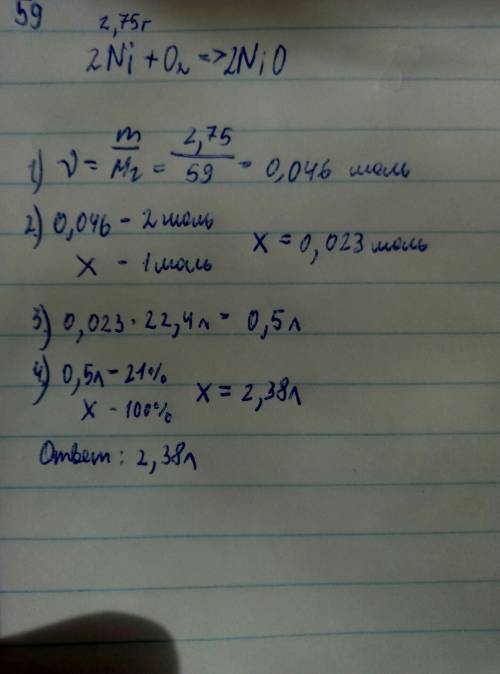 59
2,75г
2Ni + O₂ => 2NiO
1) ν = m/Mr = 2,75/59 = 0,046 моль
2) 0,046 - 2 моль
x - 1 моль x = 0,023 моль
3) 0,023 · 22,4л = 0,5л
4) 0,5л - 21%
x - 100% x = 2,38л
Ответ: 2,38л